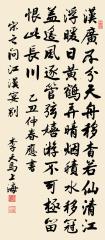 漢廣不分天舟移杳若仙清江
浮暖日黃鶴弄晴煙積水移冠
蓋遙風逐管弦嬉遊不可極留
恨此長川 乙丑仲春應書
宋之问江漢宴別 李天馬上海